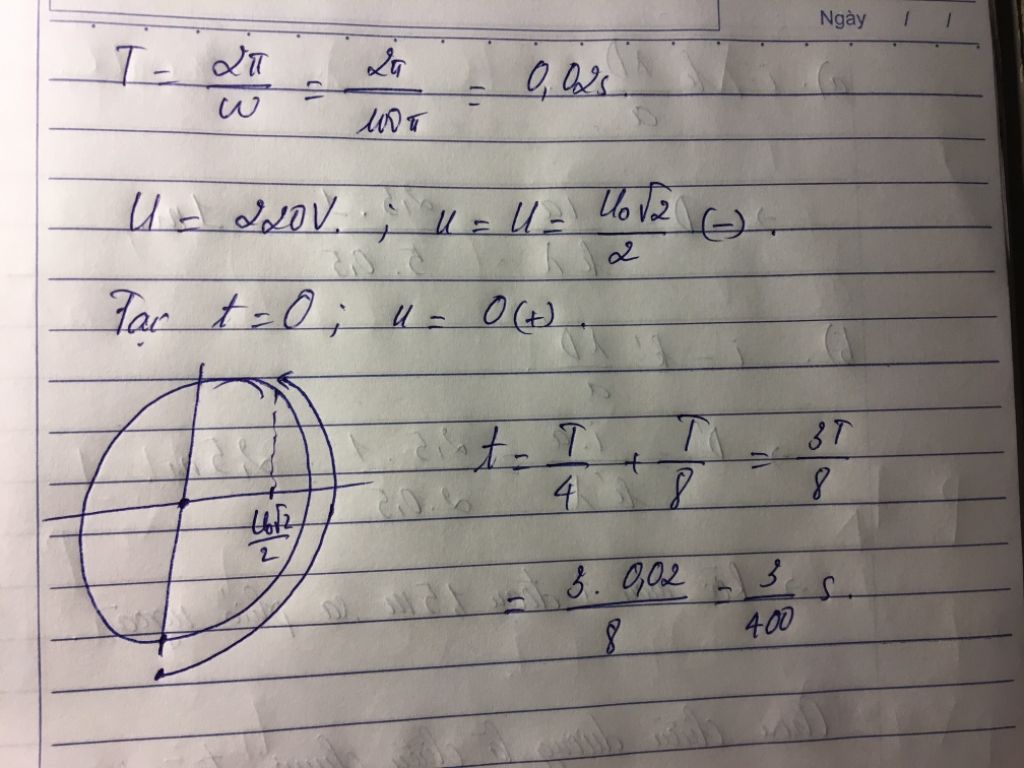 Ngày / /
T = 2π/ω = 2π/100π = 0,02s.
U = 220V. ; u = U = U₀√2/2 (-).
Tại t = 0 ; u = 0 (+).
U₀√2/2
t = T/4 + T/8 = 3T/8
= 3. 0,02/8 = 3/400 s.